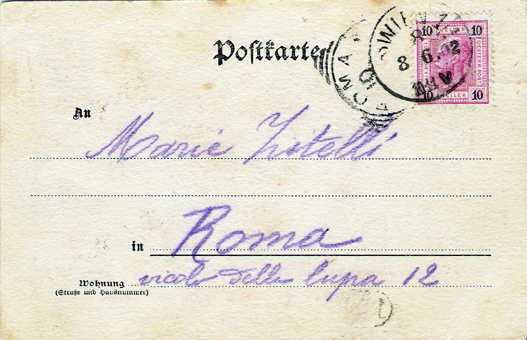 Postkarte
10 10
WIEN
8 6.02
10 10
ROMA
An
Marie Zotelli
in Roma
Wohnung vicolo della Lupa 12
(Straße und Hausnummer)